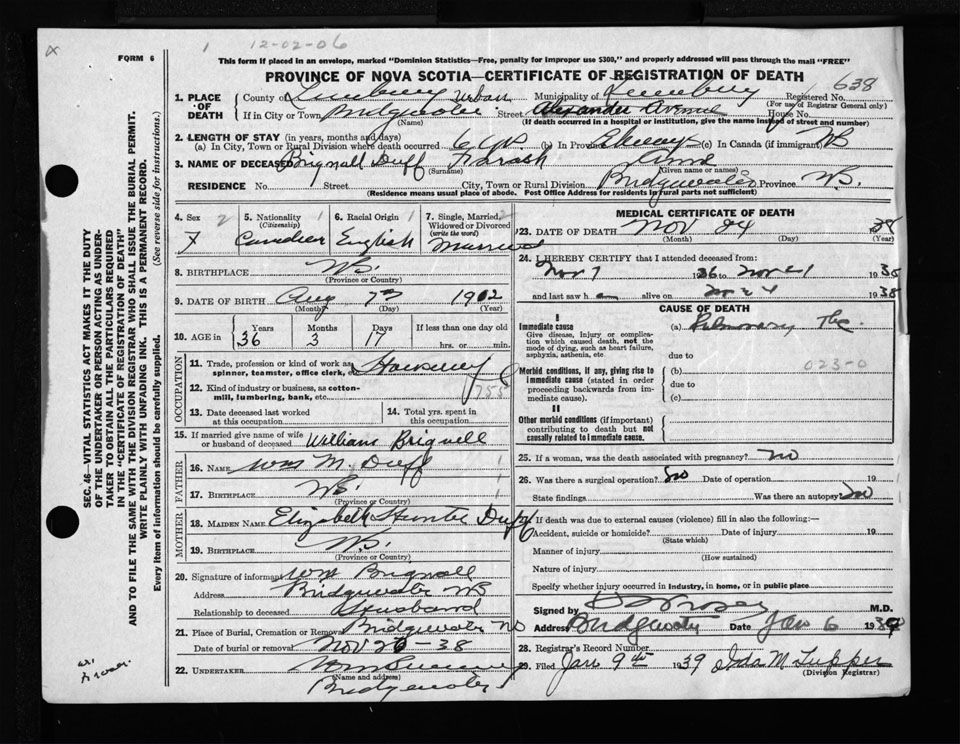 1 12-02-06
FORM 6
This form if placed in an envelope, marked "Dominion Statistics—Free, penalty for improper use $300," and properly addressed will pass through the mail "FREE"
PROVINCE OF NOVA SCOTIA—CERTIFICATE OF REGISTRATION OF DEATH
638
1. PLACE OF DEATH
County of Lunenburg Urban Municipality of Lunenburg Registered No.
(For use of Registrar General only)
If in City or Town Bridgewater Street Alexander Avenue House No.
(Name) (If death occurred in a hospital or institution, give the name instead of street and number)
2. LENGTH OF STAY (in years, months and days)
(a) In City, Town or Rural Division where death occurred 6 yrs (b) In Province (c) In Canada (if immigrant)
3. NAME OF DECEASED Brignall Duff Sarah
(Surname) (Given name or names)
RESIDENCE No. Street City, Town or Rural Division Bridgewater Province N.S.
(Residence means usual place of abode. Post Office Address for residents in rural parts not sufficient)
4. Sex 2
F
5. Nationality 1
(Citizenship)
Canadian
6. Racial Origin 1
English
7. Single, Married, Widowed or Divorced 2
(write the word)
Married
8. BIRTHPLACE N.S.
(Province or Country)
9. DATE OF BIRTH Aug 7th 1902
(Month) (Day) (Year)
10. AGE in Years Months Days If less than one day old
36 3 17 hrs. or min.
OCCUPATION
11. Trade, profession or kind of work as spinner, teamster, office clerk, etc.
12. Kind of industry or business, as cotton-mill, lumbering, bank, etc. 755
13. Date deceased last worked at this occupation
14. Total yrs. spent in this occupation
15. If married give name of wife or husband of deceased William Brignell
FATHER
16. NAME Wm M. Duff
17. BIRTHPLACE N.S.
(Province or Country)
MOTHER
18. MAIDEN NAME Elizabeth Hunter Duff
19. BIRTHPLACE N.S.
(Province or Country)
20. Signature of informant Wm Brignall
Address Bridgewater NS
Relationship to deceased Husband
21. Place of Burial, Cremation or Removal Bridgewater NS
Date of burial or removal Nov 26-38
22. UNDERTAKER
(Name and address)
Bridgewater
MEDICAL CERTIFICATE OF DEATH
23. DATE OF DEATH Nov 24 1938
(Month) (Day) (Year)
24. I HEREBY CERTIFY that I attended deceased from:
Nov 7 1936 to Nov 21 1938
and last saw h alive on Nov 24 1938
CAUSE OF DEATH
I
Immediate cause (a) Pulmonary Tbc.
Give disease, injury or complication which caused death, not the mode of dying, such as heart failure, asphyxia, asthenia, etc
due to
023-0
Morbid conditions, if any, giving rise to immediate cause (stated in order proceeding backwards from immediate cause). (b)
due to
(c)
II
Other morbid conditions (if important) contributing to death but not causally related to immediate cause.
25. If a woman, was the death associated with pregnancy? No
26. Was there a surgical operation? No Date of operation 19
State findings Was there an autopsy? No
27. If death was due to external causes (violence) fill in also the following:—
Accident, suicide or homicide? Date of injury 19
(State which)
Manner of injury
(How sustained)
Nature of injury
Specify whether injury occurred in industry, in home, or in public place
Signed by M.D.
Address Bridgewater Date Jan 6 1939
28. Registrar's Record Number
29. Filed Jan 9th 1939 Ida M. Tupper
(Division Registrar)
SEC. 46—VITAL STATISTICS ACT MAKES IT THE DUTY OF THE UNDERTAKER OR PERSON ACTING AS UNDERTAKER TO OBTAIN ALL THE PARTICULARS REQUIRED IN THE "CERTIFICATE OF REGISTRATION OF DEATH" AND TO FILE THE SAME WITH THE DIVISION REGISTRAR WHO SHALL ISSUE THE BURIAL PERMIT.
WRITE PLAINLY WITH UNFADING INK. THIS IS A PERMANENT RECORD.
Every item of information should be carefully supplied. (See reverse side for instructions.)